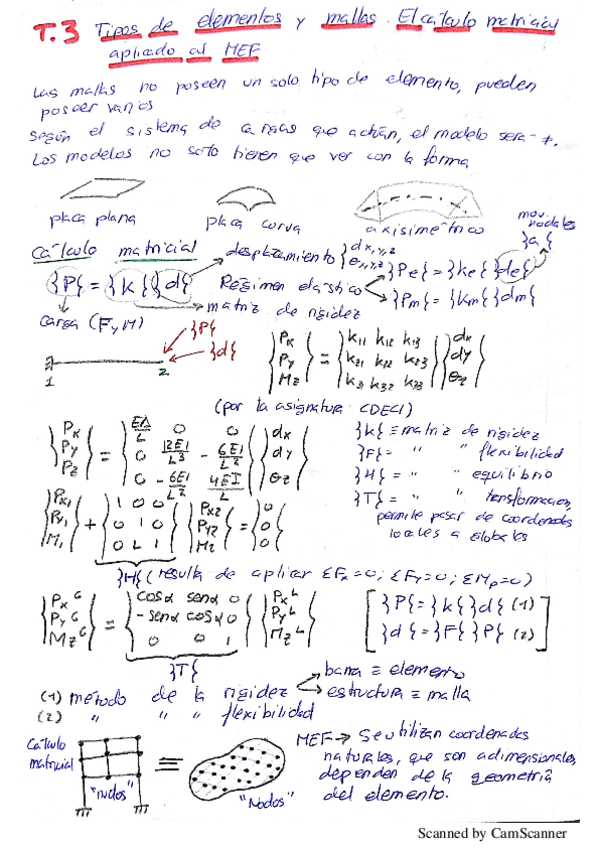 T.3 Tipos de elementos y mallas. El cálculo matricial
aplicado al MEF
Las mallas no poseen un solo tipo de elemento, pueden
poseer varios
Según el sistema de cargas que actúan, el modelo será ≠.
Los modelos no solo tienen que ver con la forma
placa plana
placa curva
axisimétrico
mov. nodales
}a{
Cálculo matricial
desplazamiento }dx,y,z θx,y,z
}P{ = }k{ }d{
Régimen elástico
}Pe{ = }ke{ }de{
}Pm{ = }km{ }dm{
matriz de rigidez
carga (F y M)
}P{
}d{
1 2
}Px Py Mz{ = }k11 k12 k13 k21 k22 k23 k31 k32 k33{ }dx dy θz{
(por la asignatura CDECI)
}Px Py Pz{ = }EA/L 0 0 0 12EI/L³ -6EI/L² 0 -6EI/L² 4EI/L{ }dx dy θz{
}k{ ≡ matriz de rigidez
}F{ = " " flexibilidad
}H{ = " " equilibrio
}T{ = " " transformación,
permite pasar de coordenadas
locales a globales
}Px1 Py1 M1{ + }1 0 0 0 1 0 0 L 1{ }Px2 Py2 M2{ = }0 0 0{
}H{ (resulta de aplicar ΣFx=0; ΣFy=0; ΣMp=0)
}Px^G Py^G Mz^G{ = }cosα senα 0 -senα cosα 0 0 0 1{ }Px^L Py^L Mz^L{
[ }P{ = }k{ }d{ (1)
}d{ = }F{ }P{ (2) ]
}T{
(1) método de la rigidez
barra ≡ elemento
estructura ≡ malla
(2) " " " flexibilidad
Cálculo
matricial
"nudos"
≡
"Nodos"
MEF → Se utilizan coordenadas
naturales, que son adimensionales,
dependen de la geometría
del elemento.
Scanned by CamScanner